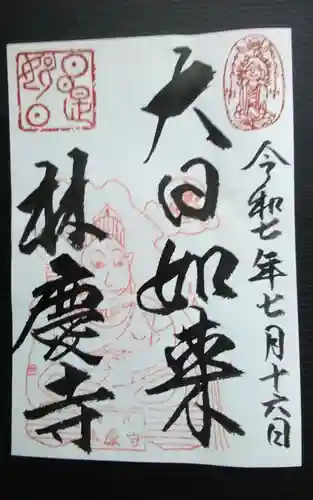 令和七年七月十六日
大日如来
林慶寺
林慶寺